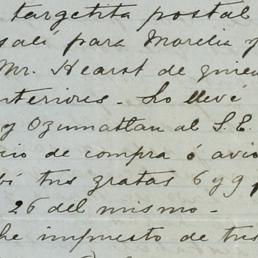 targetita postal
salí para Morelia y
Mr. Hearst de quien
nteriores - Lo llevé
y Ozumatlan al S.E.
cio de compra ó avio
bí tus gratas 6 y 9 p
26 del mismo -
he impuesto de tus